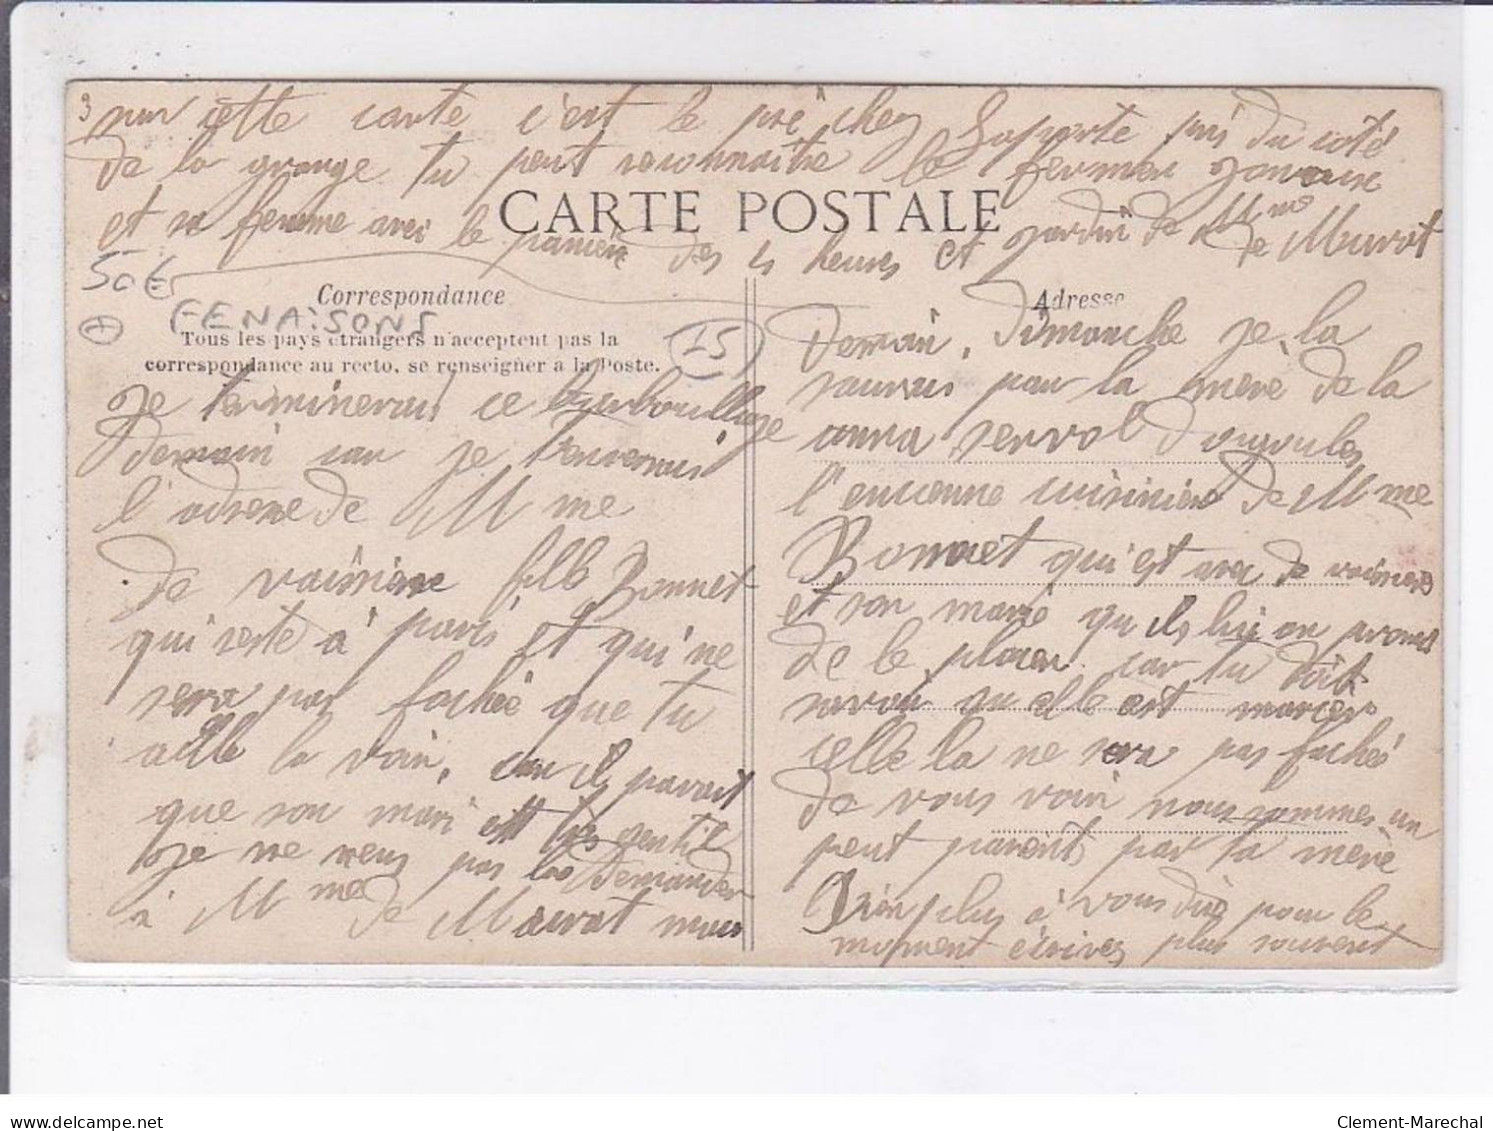 3
sur cette carte c'est le pré chez Laporte pris du coté
de la grange tu peut reconnaitre le fermier
et sa femme avec le panier des 4 heures et jardin de Mme de Murat
CARTE POSTALE
50€
FENAISONS
15
Correspondance
Tous les pays étrangers n'acceptent pas la
correspondance au recto, se renseigner à la Poste.
Je terminerais ce barbouillage
Demain car je t'enverrais
l'adresse de Mme
De vaissiere fille Bonnet
qui reste à paris et qui ne
sera pas fachée que tu
aille la voir, car il parait
que son mari est très gentil
Je ne veus pas la demander
à Mme de Murat mais
Adresse
Demain, Dimanche je la
saurais par la mère de la
anna servol
l'encienne cuisinière de Mme
Bonnet qui est avec de vaissiere
et son marie qu'ils lui on promis
de le placer car tu doit
savoir qu elle est marier
celle la ne sera pas fachée
de vous voir nous sommes un
peut parent par ta mère
Rien plus à vous dire pour le
moment écrivez plus souvent
Clement-Marechal
www.delcampe.net